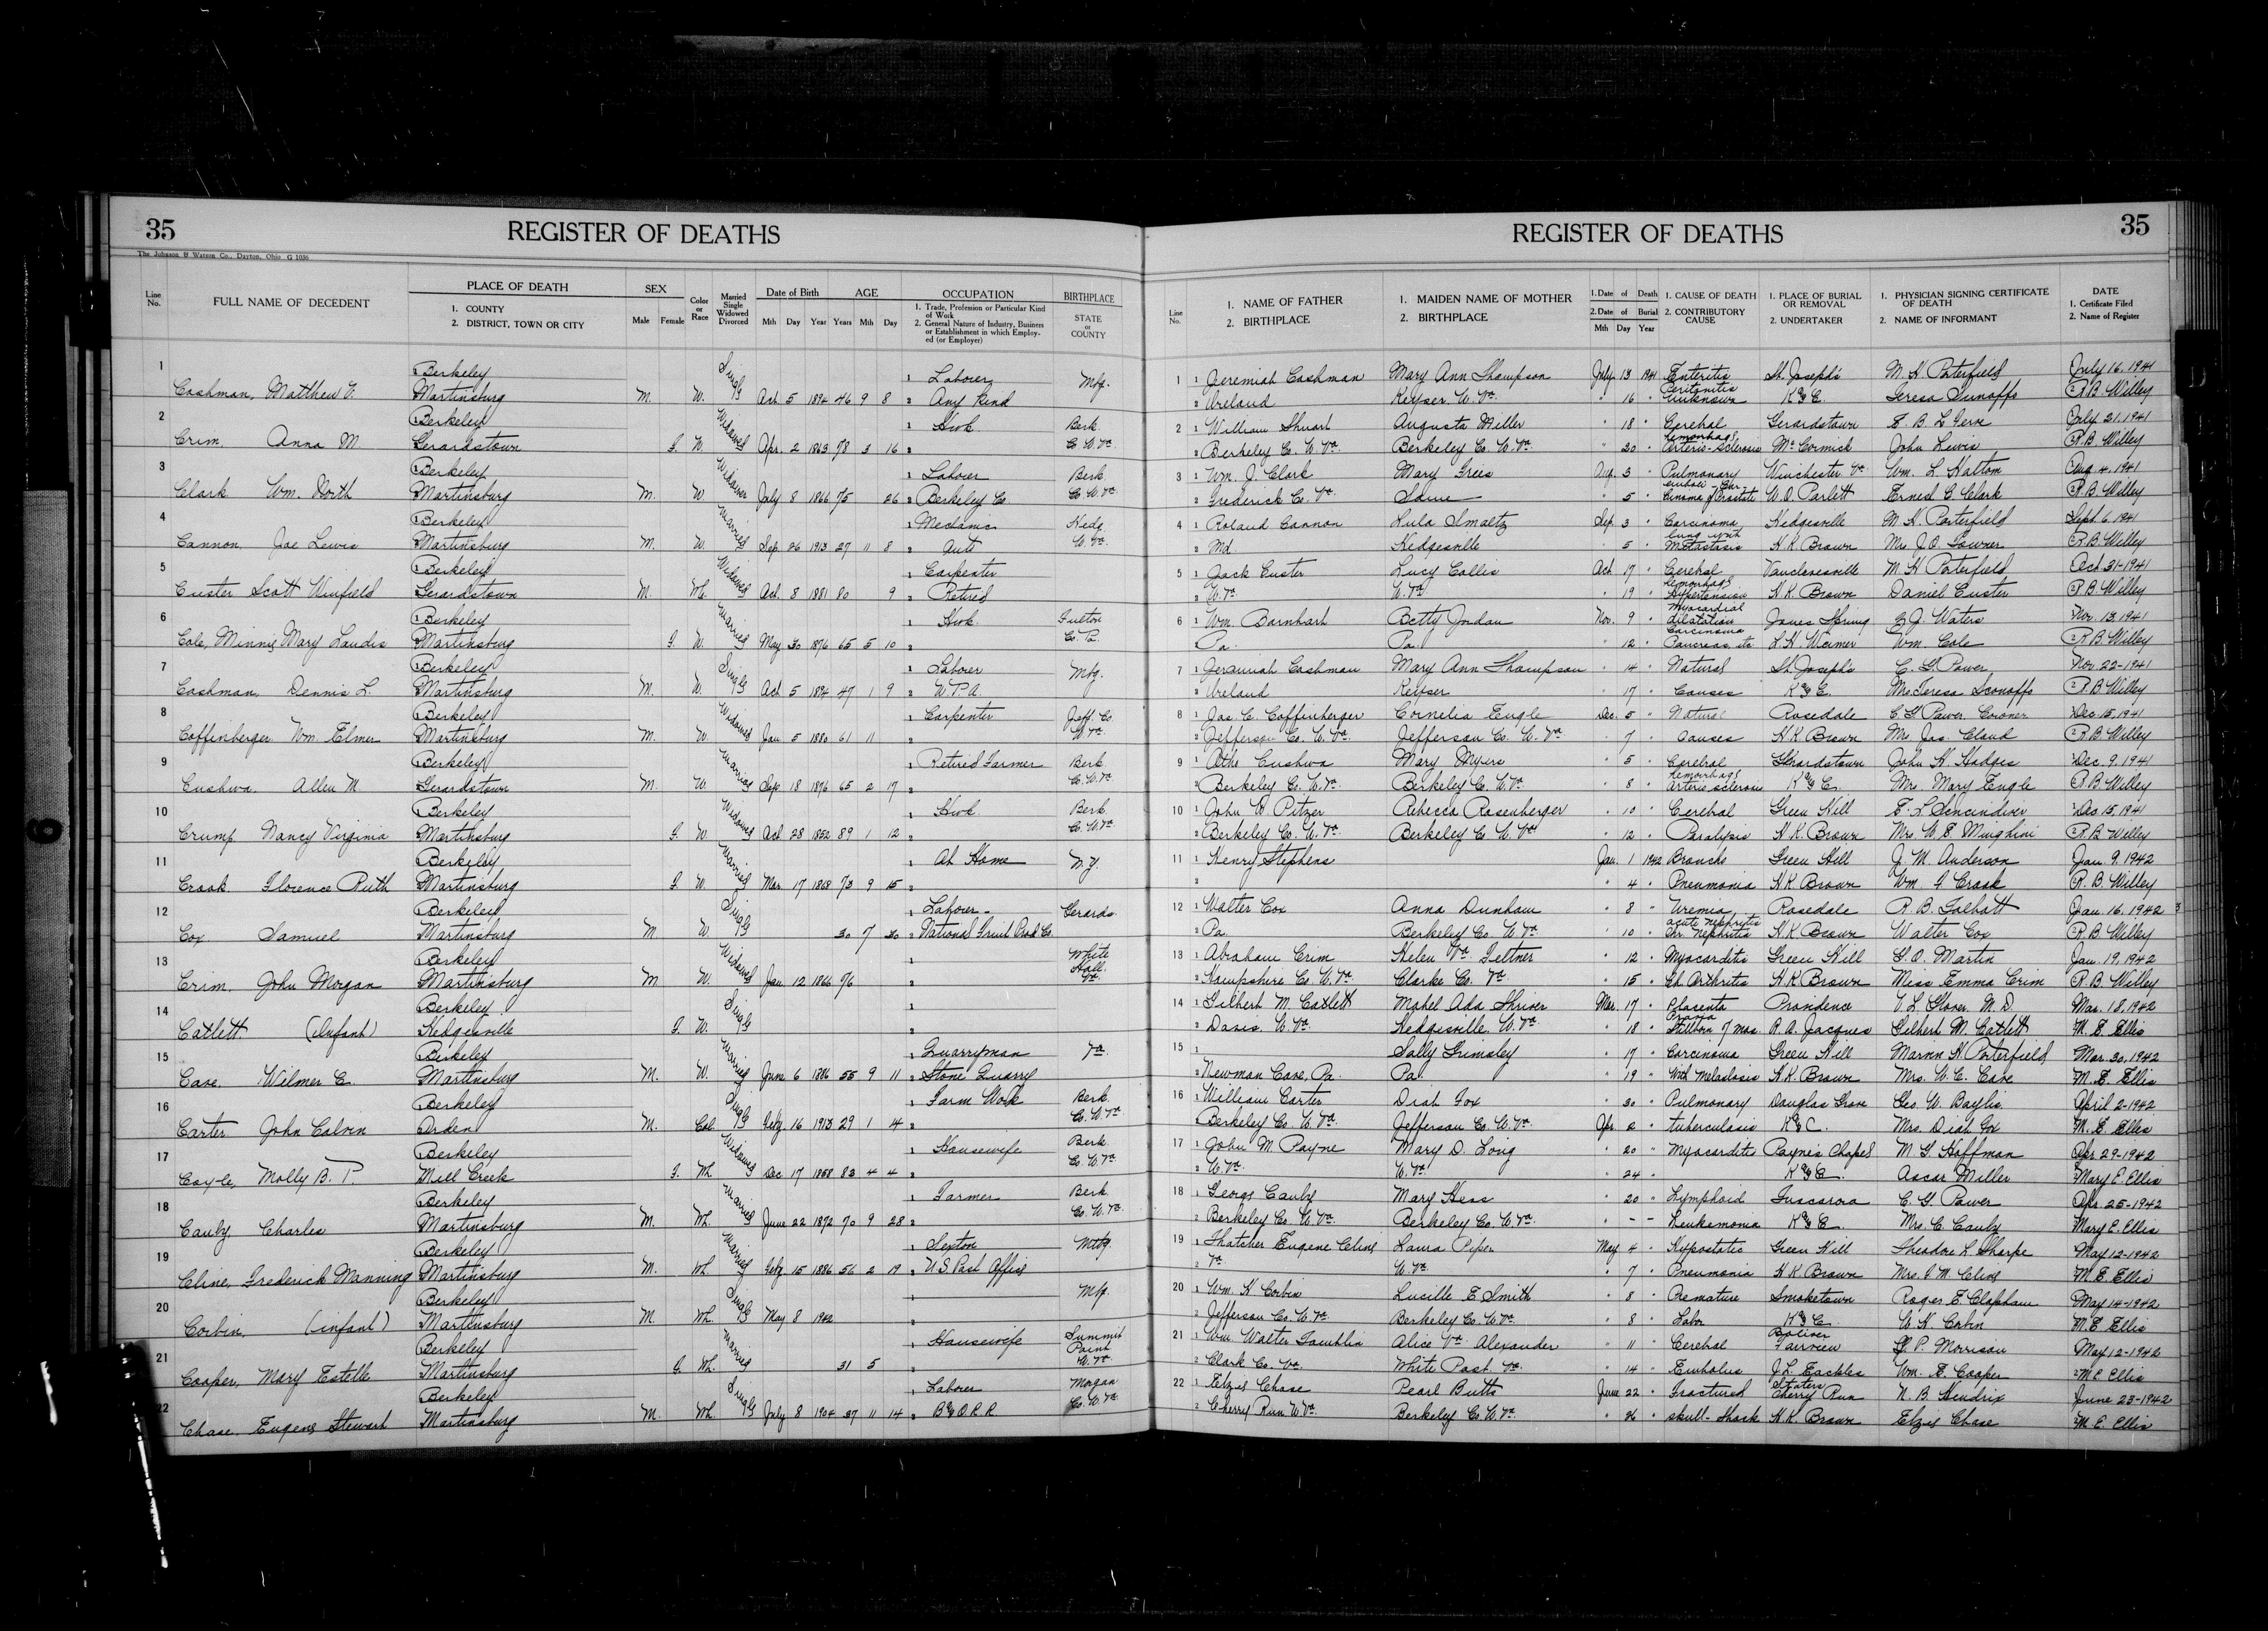 35
REGISTER OF DEATHS
The Johnson & Watson Co., Dayton, Ohio G 1036
Line No.
FULL NAME OF DECEDENT
PLACE OF DEATH
1. COUNTY
2. DISTRICT, TOWN OR CITY
SEX
Male Female
Color or Race
Married Single Widowed Divorced
Date of Birth
Mth Day Year
AGE
Years Mth Day
OCCUPATION
1. Trade, Profession or Particular Kind of Work
2. General Nature of Industry, Business or Establishment in which Employed (or Employer)
BIRTHPLACE
STATE or COUNTY
1 Berkeley Single 1 Laborer Mbg.
Cashman, Matthew V. Martinsburg M. W. Oct 5 1894 46 9 8 2 Any kind
2 Berkeley Widowed 1 Hwk. Berk.
Crim, Anna M. Gerardstown F. W. Apr. 2 1863 78 3 16 2 Co. W. Va.
3 Berkeley Widower 1 Laborer Berk
Clark Wm. North Martinsburg M. W. July 8 1866 75 26 2 Berkeley Co Co. W. Va.
4 Berkeley Married 1 Mechanic Hedg
Cannon, Joe Lewis Martinsburg M. W. Sep. 26 1913 27 11 8 2 Auto W. Va.
5 Berkeley Widowed 1 Carpenter
Custer Scott Winfield Gerardstown M. Wh. Oct. 8 1881 80 9 2 Retired
6 Berkeley Married 1 Hwk. Fulton
Cole, Minnie Mary Landis Martinsburg F. W. May 30 1876 65 5 10 2 Co. Pa.
7 Berkeley Single 1 Laborer Mbg.
Cashman, Dennis L. Martinsburg M. W. Oct 5 1894 47 1 9 2 W.P.A.
8 Berkeley Widowed 1 Carpenter Jeff. Co.
Coffinberger Wm. Elmer Martinsburg M. W. Jan 5 1880 61 11 2 W. Va.
9 Berkeley Married 1 Retired Farmer Berk
Cushwa, Allen M. Gerardstown M. W. Sep. 18 1876 65 2 17 2 Co. W. Va.
10 Berkeley Widowed 1 Hwk Berk.
Crump Nancy Virginia Martinsburg F. W. Oct 28 1852 89 1 12 2 Co. W. Va.
11 Berkeley Married 1 At Home N.Y.
Crook Florence Ruth Martinsburg F. W. Mar 17 1868 73 9 15 2
12 Berkeley Single 1 Laborer Gerards
Cox Samuel Martinsburg M W 30 7 30 2 National Fruit Prod Co.
13 Berkeley Widowed 1 White Hall. Va.
Crim, John Morgan Martinsburg M W. Jan 12 1866 76 2
14 Berkeley Single 1
Catlett (Infant) Hedgesville F. W. 2
15 Berkeley Married 1 Quarryman Va.
Cave, Wilmer C. Martinsburg M. W. June 6 1886 55 9 11 2 Stone Quarry
16 Berkeley Single 1 Farm Work Berk.
Carter John Calvin Arden M. Col Feby 16 1913 29 1 14 2 Co. W. Va.
17 Berkeley Widowed 1 Housewife Berk
Coyle, Molly B. P. Mill Creek F. Wh Dec 17 1858 83 4 4 2 Co W. Va.
18 Berkeley Married 1 Farmer Berk
Cauby, Charles Martinsburg M. Wh. June 22 1872 70 9 28 2 Co. W. Va.
19 Berkeley Married 1 Sexton Mtbg.
Cline, Frederick Manning Martinsburg M. Wh Feby 15 1886 56 2 19 2 U.S. Post Office
20 Berkeley Single 1 Mbg.
Corbin, (infant) Martinsburg M. Wh. May 8 1942 2
21 Berkeley Married 1 Housewife Summit Point W. Va.
Cooper, Mary Estelle Martinsburg F. Wh. 31 5 2
22 Berkeley Single 1 Laborer Morgan
Chase, Eugene Stewart Martinsburg M. Wh. July 8 1904 37 11 14 2 B & O R.R. Co. W. Va.
REGISTER OF DEATHS
35
Line No.
1. NAME OF FATHER
2. BIRTHPLACE
1. MAIDEN NAME OF MOTHER
2. BIRTHPLACE
1. Date of Death
2. Date of Burial
Mth Day Year
1. CAUSE OF DEATH
2. CONTRIBUTORY CAUSE
1. PLACE OF BURIAL OR REMOVAL
2. UNDERTAKER
1. PHYSICIAN SIGNING CERTIFICATE OF DEATH
2. NAME OF INFORMANT
DATE
1. Certificate Filed
2. Name of Register
1 1 Jeremiah Cashman Mary Ann Thompson July 13 1941 Enteritis St. Joseph's M. H. Porterfield July 16. 1941
2 Ireland Keyser. W. Va. " 16 " Peritonitis K & C. Teresa R. B. Willey
2 1 William Stuart Augusta Miller " 18 " Cerebral Gerardstown July 21. 1941
2 Berkeley Co. W. Va. Berkeley Co. W. Va. " 20 " hemorrhage Arterio-sclerosis McCormick John Lewis R. B. Willey
3 1 Wm. J. Clark Mary Grees Aug. 3 " Pulmonary Winchester Va Wm. L. Hatton Aug 4. 1941
2 Frederick Co. Va. Same " 5 " emboli Car-cinoma of Prostate W. O. Parlett Ernest C. Clark R. B. Willey
4 1 Roland Cannon Lula Smaltz Sep. 3 " Carcinoma Hedgesville M. H. Porterfield Sept. 6. 1941
2 Md. Hedgesville " 5 " lung with metastasis H. K. Brown Mrs. J. O. Towner R. B. Willey
5 1 Jack Custer Lucy Collis Oct 17 " Cerebral Vanclevesville M. H. Porterfield Oct 31-1941
2 W. Va W. Va. " 19 " hemorrhage Hypertension H. K. Brown Daniel Custer R. B. Willey
6 1 Wm. Barnhart Betty Jordan Nov. 9 " Myocardial dilatation Jones Spring E. J. Waters Nov. 13. 1941
2 Pa. Pa. " 12 " Carcinoma Pancreas etc L. H. Weimer Wm. Cole R. B. Willey
7 1 Jeramiah Cashman Mary Ann Thompson " 14 " Natural St. Joseph's C. G. Power Nov. 22-1941
2 Ireland Keyser " 17 " Causes K & C. Mrs Teresa R. B. Willey
8 1 Jas. C. Coffinberger Cornelia Engle Dec. 5 " Natural Rosedale C. G. Power Coroner Dec 15. 1941
2 Jefferson Co. W. Va. Jefferson Co. W. Va " 7 " Causes H. K. Brown Mrs Jas. Cloud R. B. Willey
9 1 Cushwa Mary Myers " 5 " Cerebral Gerardstown John H. Hodges Dec. 9. 1941
2 Berkeley Co. W. Va. Berkeley Co. W. Va. " 8 " hemorrhage Arterio sclerosis K & C. Mrs. Mary Engle R. B. Willey
10 1 John W. Pitzer Rebecca Rosenberger " 10 " Cerebral Green Hill E. L. Sencindiver Dec 15. 1941
2 Berkeley Co. W. Va. Berkeley Co W. Va " 12 " Paralysis H. K. Brown Mrs. W. E. Minghini R. B. Willey
11 1 Henry Stephens Jan. 1 1942 Broncho Green Hill J. M. Anderson Jan 9. 1942
2 " 4 " Pneumonia H. K. Brown Wm. F. Crook R. B. Willey
12 1 Walter Cox Anna Dunham " 8 " Uremia Rosedale R. B. Talbott Jan. 16. 1942
2 Pa Berkeley Co W. Va " 10 " acute nephritis Chr. Nephritis H. K. Brown Walter Cox R. B. Willey
13 1 Abraham Crim Helen Va. Feltner " 12 " Myocarditis Green Hill G. O. Martin Jan. 19. 1942
2 Hampshire Co W. Va. Clarke Co. Va " 15 " Ch. Arthritis H. K. Brown Miss Emma Crim R. B. Willey
14 1 Gilbert M. Catlett Mabel Ada Shriver Mar. 17 " Placenta Providence V. L. Glover M. D. Mar. 18. 1942
2 Davis. W. Va. Hedgesville. W. Va. " 18 " Previa Stillborn 7 mos. R. A. Jacques Gilbert M. Catlett M. E. Ellis
15 1 Sally Grimsley " 17 " Carcinoma Green Hill Marvin H. Porterfield Mar. 30. 1942
2 Newman Cave, Pa. Pa. " 19 " With Metastasis H. K. Brown Mrs. W. C. Cave M. E. Ellis
16 1 William Carter Diah Fox " 30 " Pulmonary Douglas Grove Geo. W. Baylis April 2-1942
Berkeley Co. W. Va. Jefferson Co. W. Va. Apr. 2 " tuberculosis K & C. Mrs. Diah Fox M. E. Ellis
17 1 John M. Payne Mary D. Long " 20 " Myocarditis Payne's Chapel M. G. Hoffman Apr. 29-1942
2 W. Va. W. Va. " 24 " K & C. Oscar Miller Mary E. Ellis
18 1 George Cauby Mary Hess " 20 " Lymphoid Tuscarora C. G. Power Apr. 25-1942
2 Berkeley Co. W. Va. Berkeley Co. W. Va. " - - Leukemonia K & C Mrs. C. Cauby Mary E. Ellis
19 1 Thatcher Eugene Cline Laura Piper May 4 " Hypostatic Green Hill Theodore K. Sharpe May 12-1942
2 Va W. Va " 7 " Pneumonia H. K. Brown Mrs. F. M. Cline M. E. Ellis
20 1 Wm. H. Corbin Lucille E. Smith " 8 " Premature Smoketown Roger E. Clapham May 14-1942
2 Jefferson Co. W. Va. Berkeley Co. W. Va. " 8 " Labor K & C W. H. Corbin M. E. Ellis
21 1 Wm. Walter Alice Va. Alexander " 11 " Cerebral Bolivar Fairview P. Morrison May 12-1942
2 Clark Co. Va. White Post. Va. " 14 " Embolus J. L. Eackles Wm. E. Cooper M. E. Ellis
22 1 Elzie Chase Pearl Butts June 22 " Fractured Cherry Run N. B. Hendrix June 23-1942
2 Cherry Run W. Va. Berkeley Co. W. Va. " 26 " skull - Shock H. K. Brown Elzie Chase M. E. Ellis